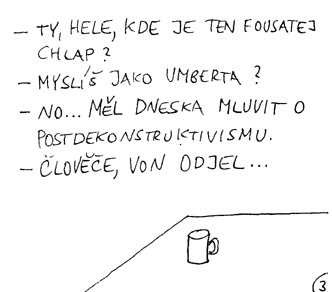 – TY, HELE, KDE JE TEN FOUSATEJ
CHLAP?
– MYSLÍŠ JAKO UMBERTA?
– NO... MĚL DNESKA MLUVIT O
POSTDEKONSTRUKTIVISMU.
– ČLOVĚČE, VON ODJEL...
3